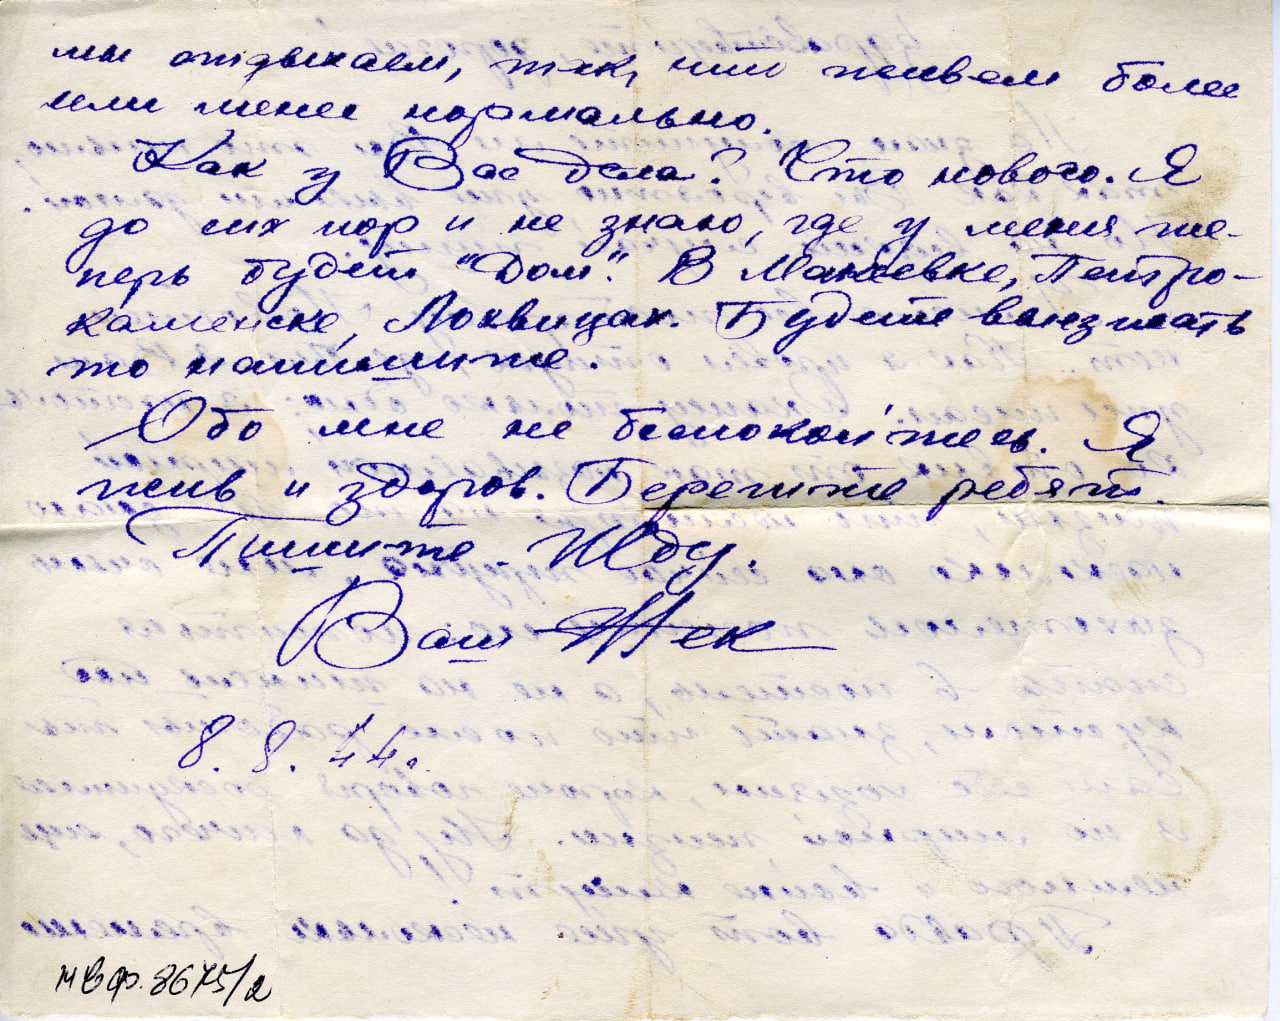 мы отдыхаем, так, что живем более
или менее нормально.
Как у Вас дела? Что нового. Я
до сих пор и не знаю, где у меня те-
перь будет "Дом". В Макеевке, Петро-
каменске, Лохвицах. Будете выезжать
то напишите.
Обо мне не беспокойтесь. Я
жив и здоров. Берегите ребят.
Пишите. Жду.
Ваш Жек
8.8.44.
НВФ.8675/2